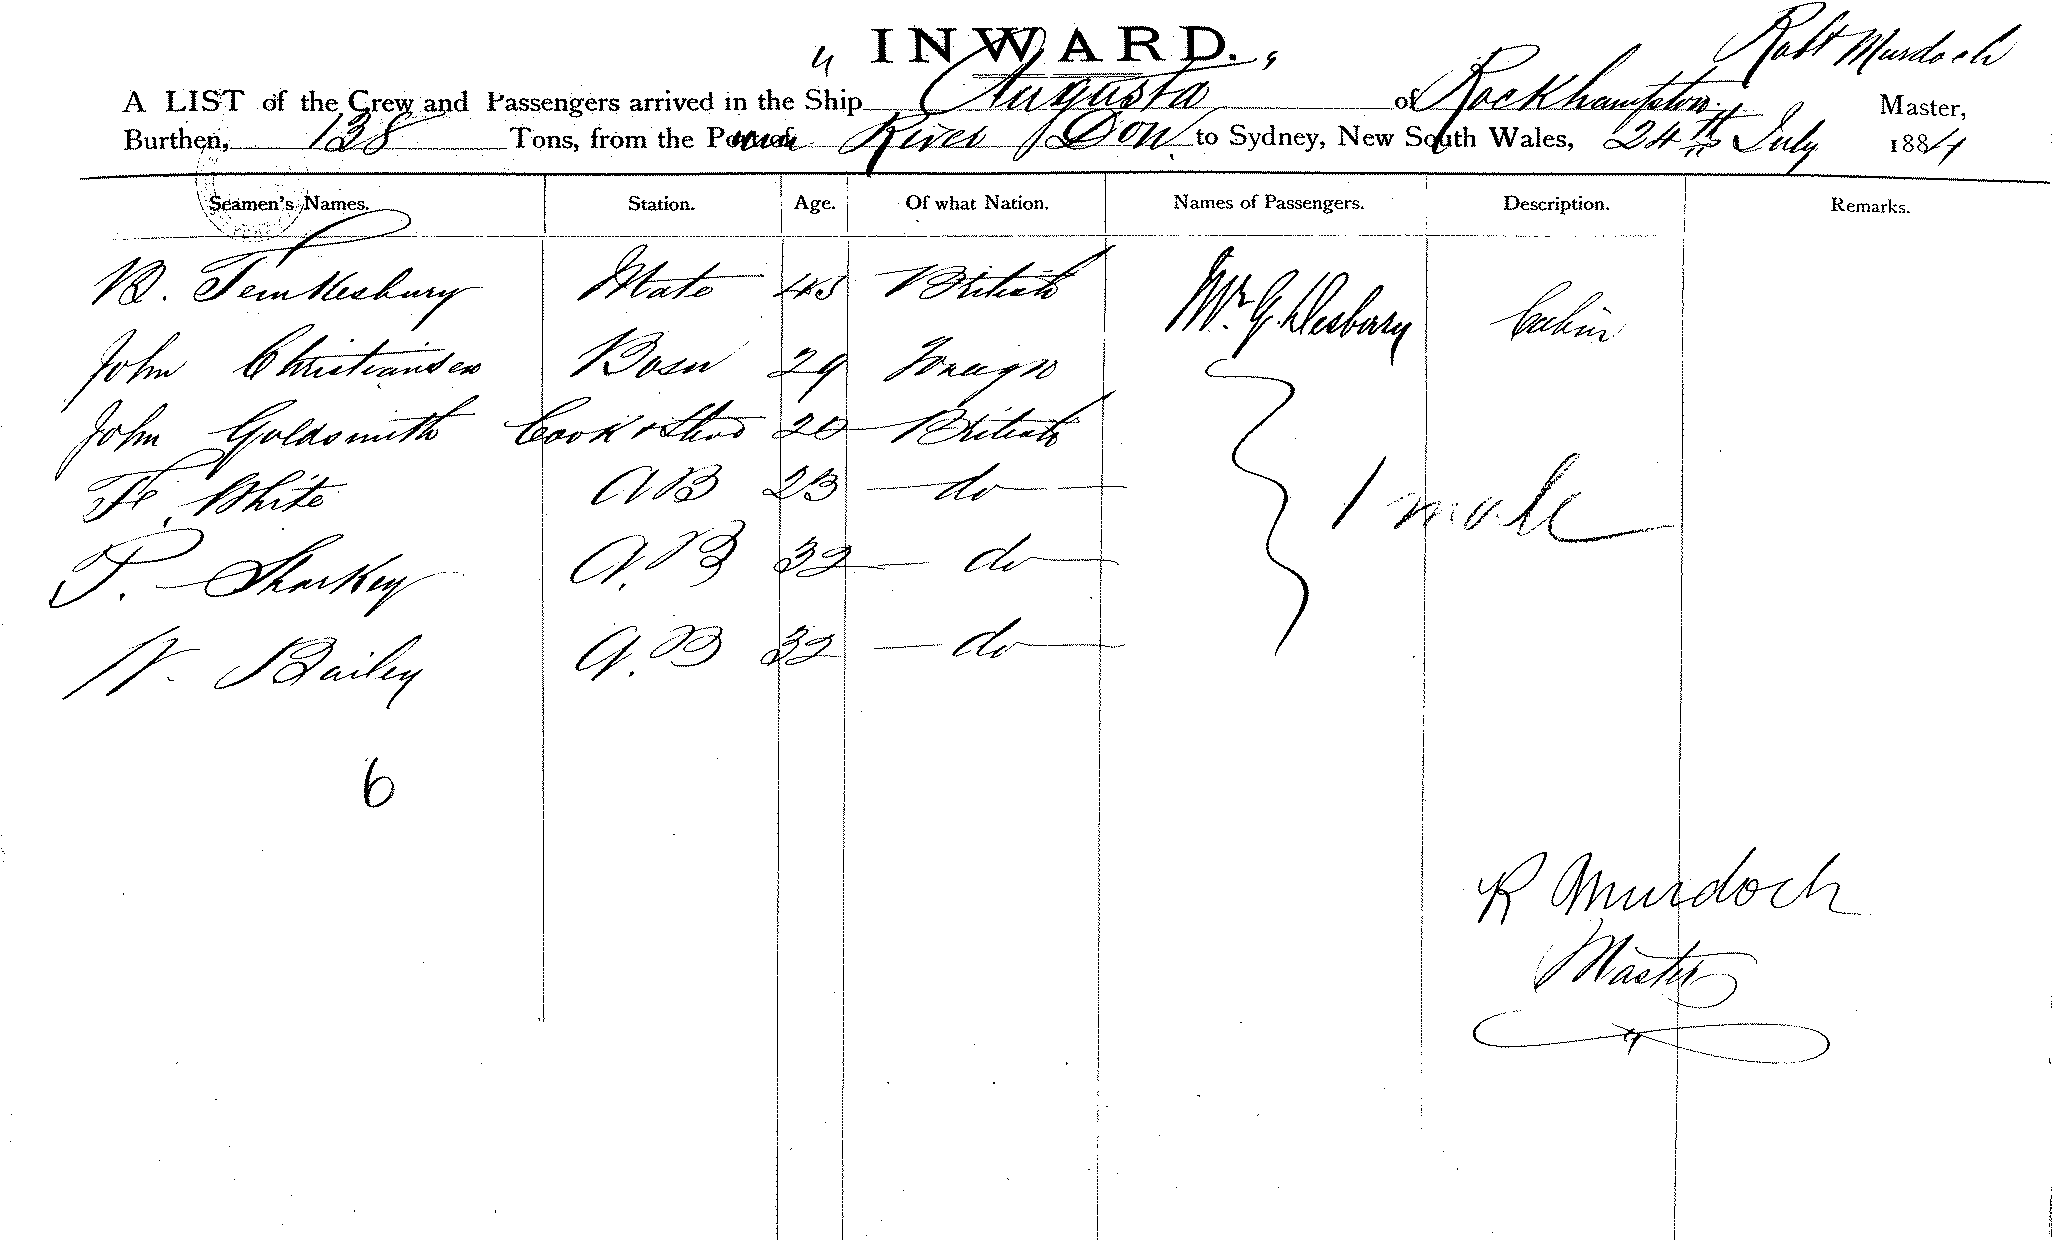 " INWARD. "
Robt Murdoch
A LIST of the Crew and Passengers arrived in the Ship Augusta of Rockhampton Master,
Burthen, 138 Tons, from the Port of River Don to Sydney, New South Wales, 24th July 1884
Seamen's Names. Station. Age. Of what Nation. Names of Passengers. Description. Remarks.
Tewkesbury Mate 45 British Mr. G. Cabin
John Christiansen Bosn 29 Foreign
John Goldsmith Cook & Stwd 20 British
F. White AB 23 do
1 male
P. Sharkey A.B 32 do
W. Bailey A.B 32 do
6
R Murdoch
Master